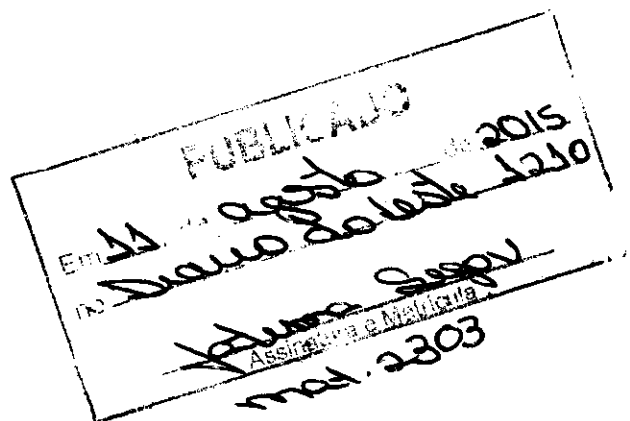 PUBLICADO
Em 11 de agosto de 2015
no Diario do Leste 1210
Assinatura e Matrícula
mat. 2303